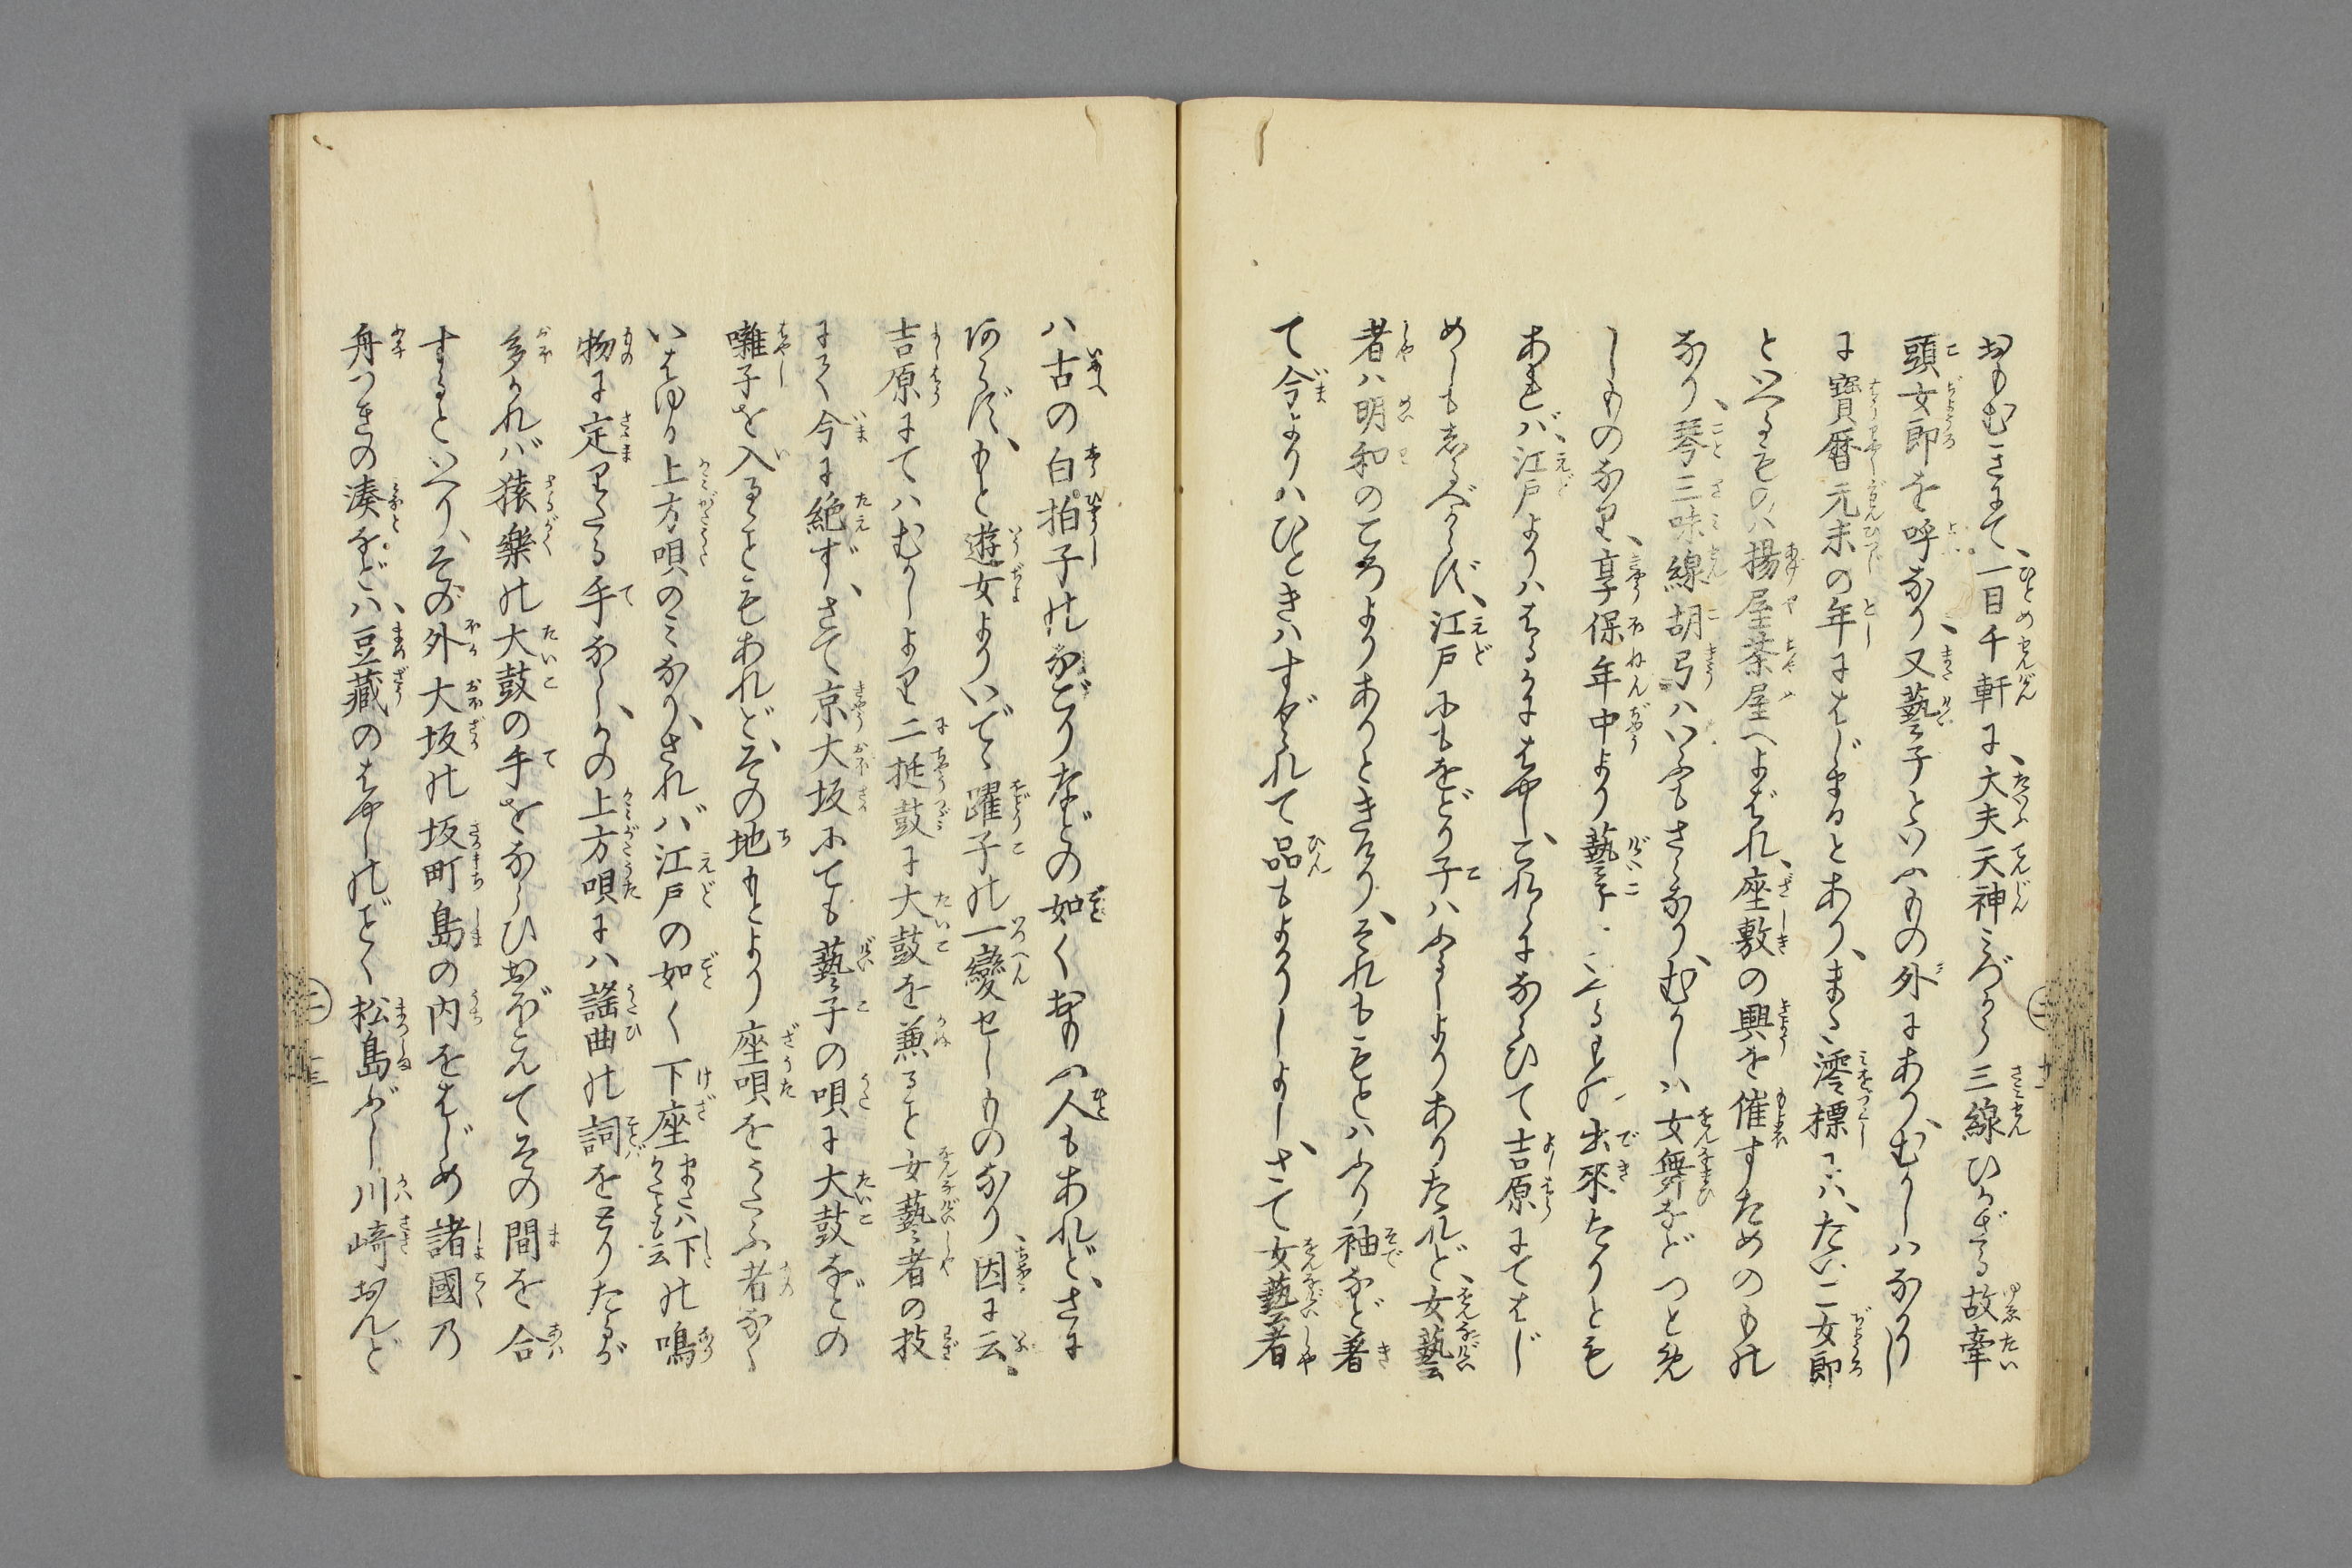 おもむきにて、一目千軒に、大夫天神みづから三線ひかざる故牽
頭女郎を呼なり、又藝子といふもの外にあり、むかしはなかりし
に寶暦元未の年にはじまるとあり、また澪標には、たいこ女郎
といへるものハ揚屋茶屋へよばれ、座敷の興を催すためのもの
なり、琴三味線胡弓ハいふもさらなり、むかしハ女舞などつとめ
しものなり、享保年中より藝子といふもの出來たりとも
あれバ、江戸よりハはるかにはやし、これらにならひて吉原にてはじ
めしも志るべからず、江戸にもをどり子ハふるくよりありたれど、女藝
者ハ明和のころよりありときけり、それももとハふり袖など着
て今よりハひときハすぐれて品もよかりしよし、さて女藝者
ハ古の白拍子のなごりなどの如くおもふ人もあれど、さに
あらず、もと遊女よりいでゝ躍子の一變セしものなり、因に云。
吉原にてハむかしより二挺鼓に大鼓を兼ると女藝者の技
にて今に絶ず、さて京大坂にても藝子の唄に大鼓などの
囃子を入るゝこともあれど、その地もとより座唄をうたふ者なく
いはゆる上方唄のミなり、されバ江戸の如く下座またハ下かたとも云の鳴
物に定りたる手なし、かの上方唄にハ謡曲の詞をとりたるが
多かれバ猿樂の大鼓の手をならひおぼえてその間を合
するといへり、その外大坂の坂町島の内をはじめ諸國乃
舟つきの湊などハ、豆藏のはやしのごとく松島ぶし川崎おんど